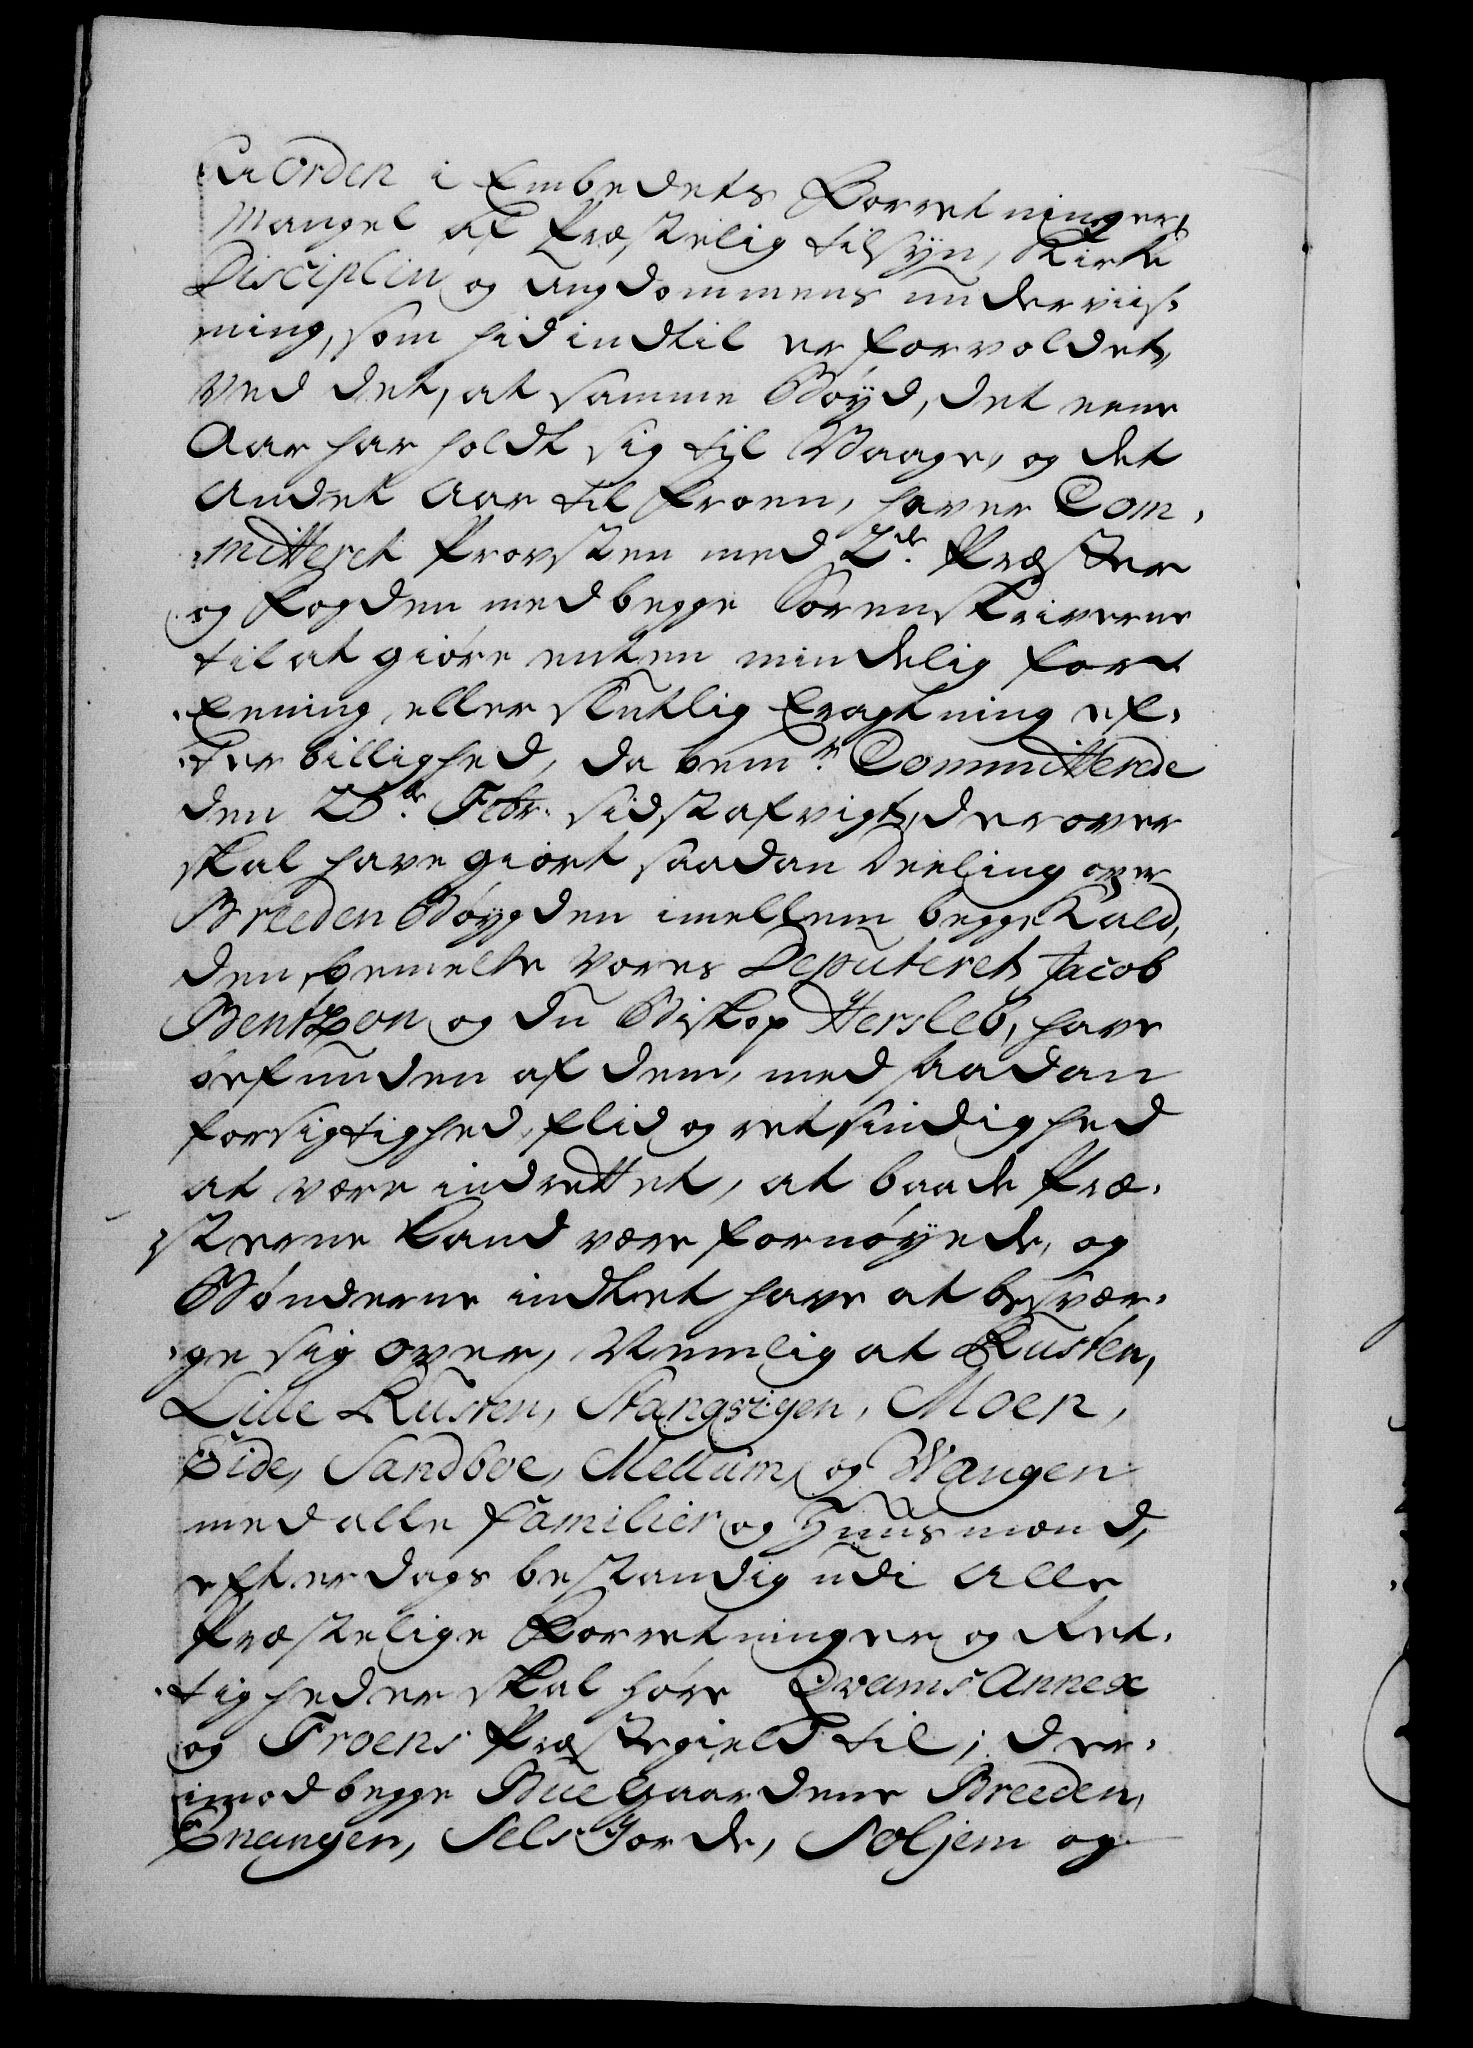 Uorden i Embedets Forretninger,
Mangel af Præstelig tilsyn, Kirke
Disciplin og Ungdommens underviis-
ning, som hid indtil er forvoldet,
ved det, at samme Bøyd, det eene
Aar har holdt sig til Vaage, og det
andet Aar til Froen, haver Com-
mitteret Provsten med 2de Præster
og Fogden med begge Sorenskriverne
til at giøre enten mindelig for-
Eening, eller skiellig Eragtning ef-
ter billighed, da bemte Committerede
den Febr: sidstafvigt, derover
skal have giort saadan Deeling over
Breeden Bøygden imellem begge Kald,
den bemelte Vores Deputeret Jacob
Bentzon og du Biskop Hersleb, have
befunden af dem, med saadan
forsigtighed, flid og retsindighed
at være indrettet, at baade Præ-
sterne kand være fornøyede, og
Bønderne indtet have at besvær-
ge sig over, Nemlig at Rusten,
Lille Rusten, Stangvigen, Moen,
Eide, Sandboe, Mellum, og Wangen
med alle Familier og Huusmænd,
efterdags bestandig udi alle
Præstelige Forretninger og Ret-
tigheder skal høre Qvams Annex
og Froens Præstegield til; der-
imod begge Bue Gaardene Breeden,
Enangen, Sels Jorde, Soljem og